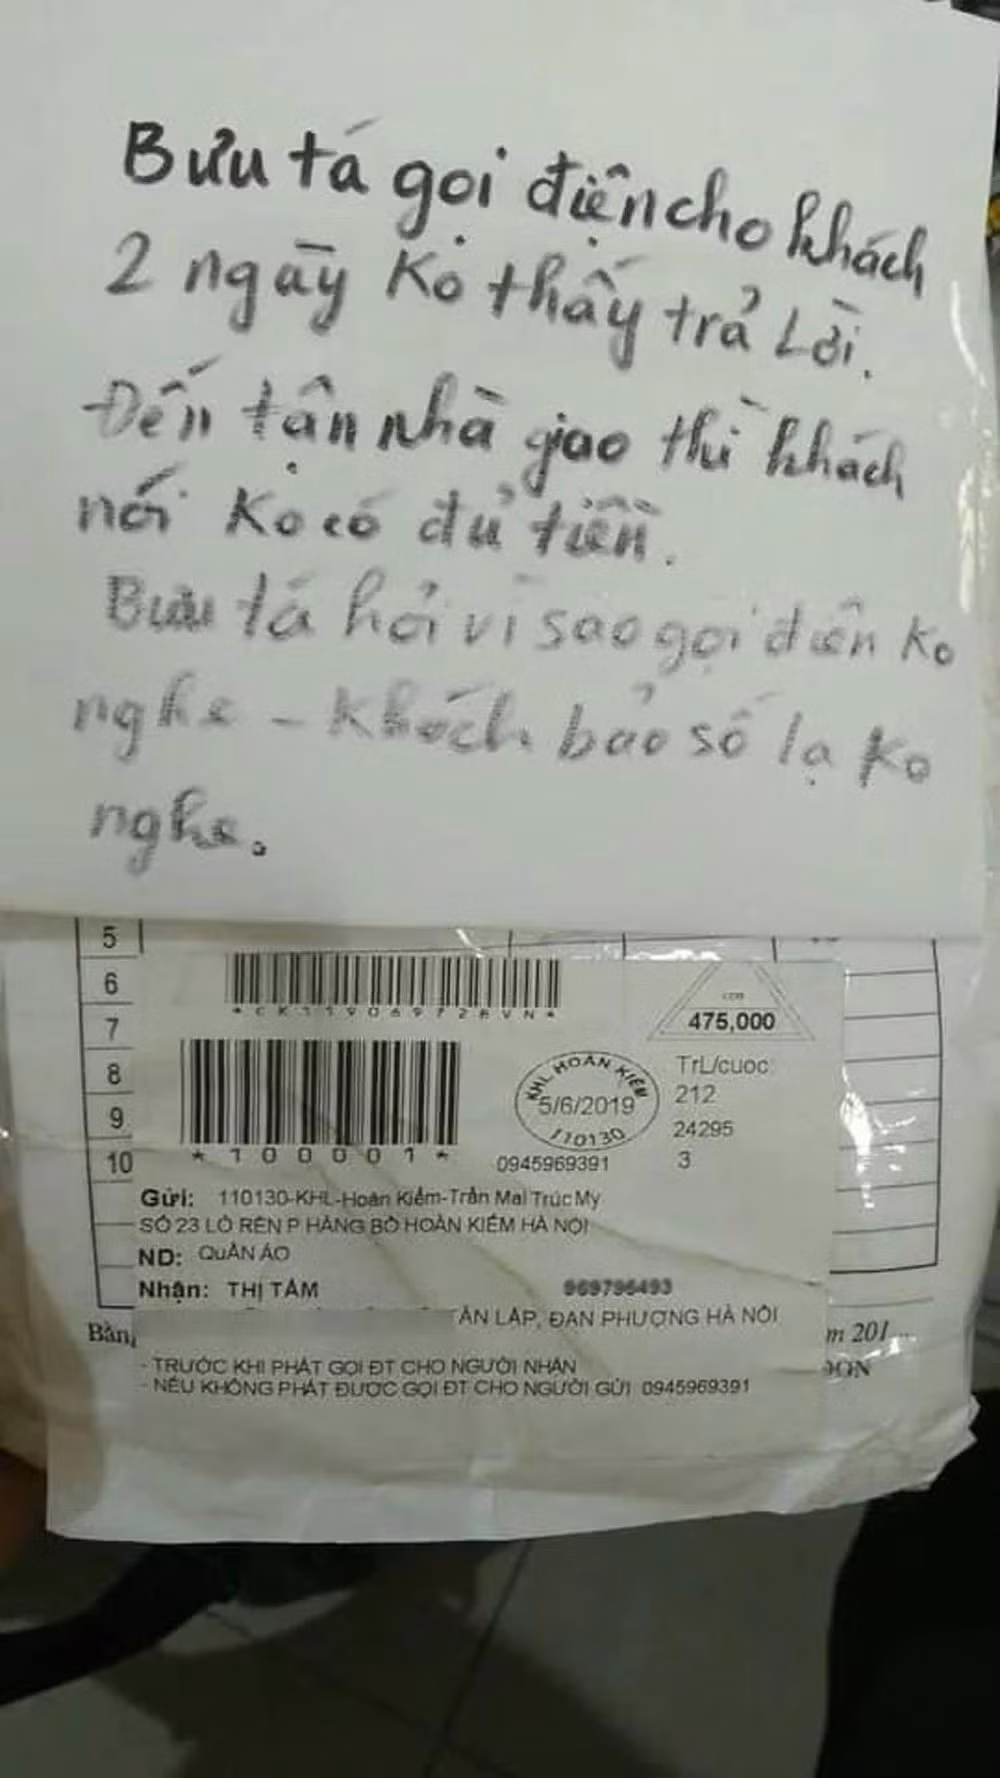 Bưu tá gọi điện cho khách
2 ngày ko thấy trả lời.
Đến tận nhà giao thì khách
nói ko có đủ tiền.
Bưu tá hỏi vì sao gọi điện ko
nghe - khách bảo số lạ ko
nghe.
5
6
7
8
9
10
*CK119069728VN*
COD
475,000
*100001*
KHL HOÀN KIẾM
5/6/2019
110130
0945969391
TrL/cuoc:
212
24295
3
Gửi: 110130-KHL-Hoàn Kiếm-Trần Mai Trúc My
SỐ 23 LÒ RÈN P HÀNG BỒ HOÀN KIẾM HÀ NỘI
ND: QuẦN ÁO
Nhận: THỊ TÂM 969796493
ÂN LẬP, ĐAN PHƯỢNG HÀ NỘI
Bằn
m 201...
- TRƯỚC KHI PHÁT GỌI ĐT CHO NGƯỜI NHẬN
- NẾU KHÔNG PHÁT ĐƯỢC GỌI ĐT CHO NGƯỜI GỬI 0945969391